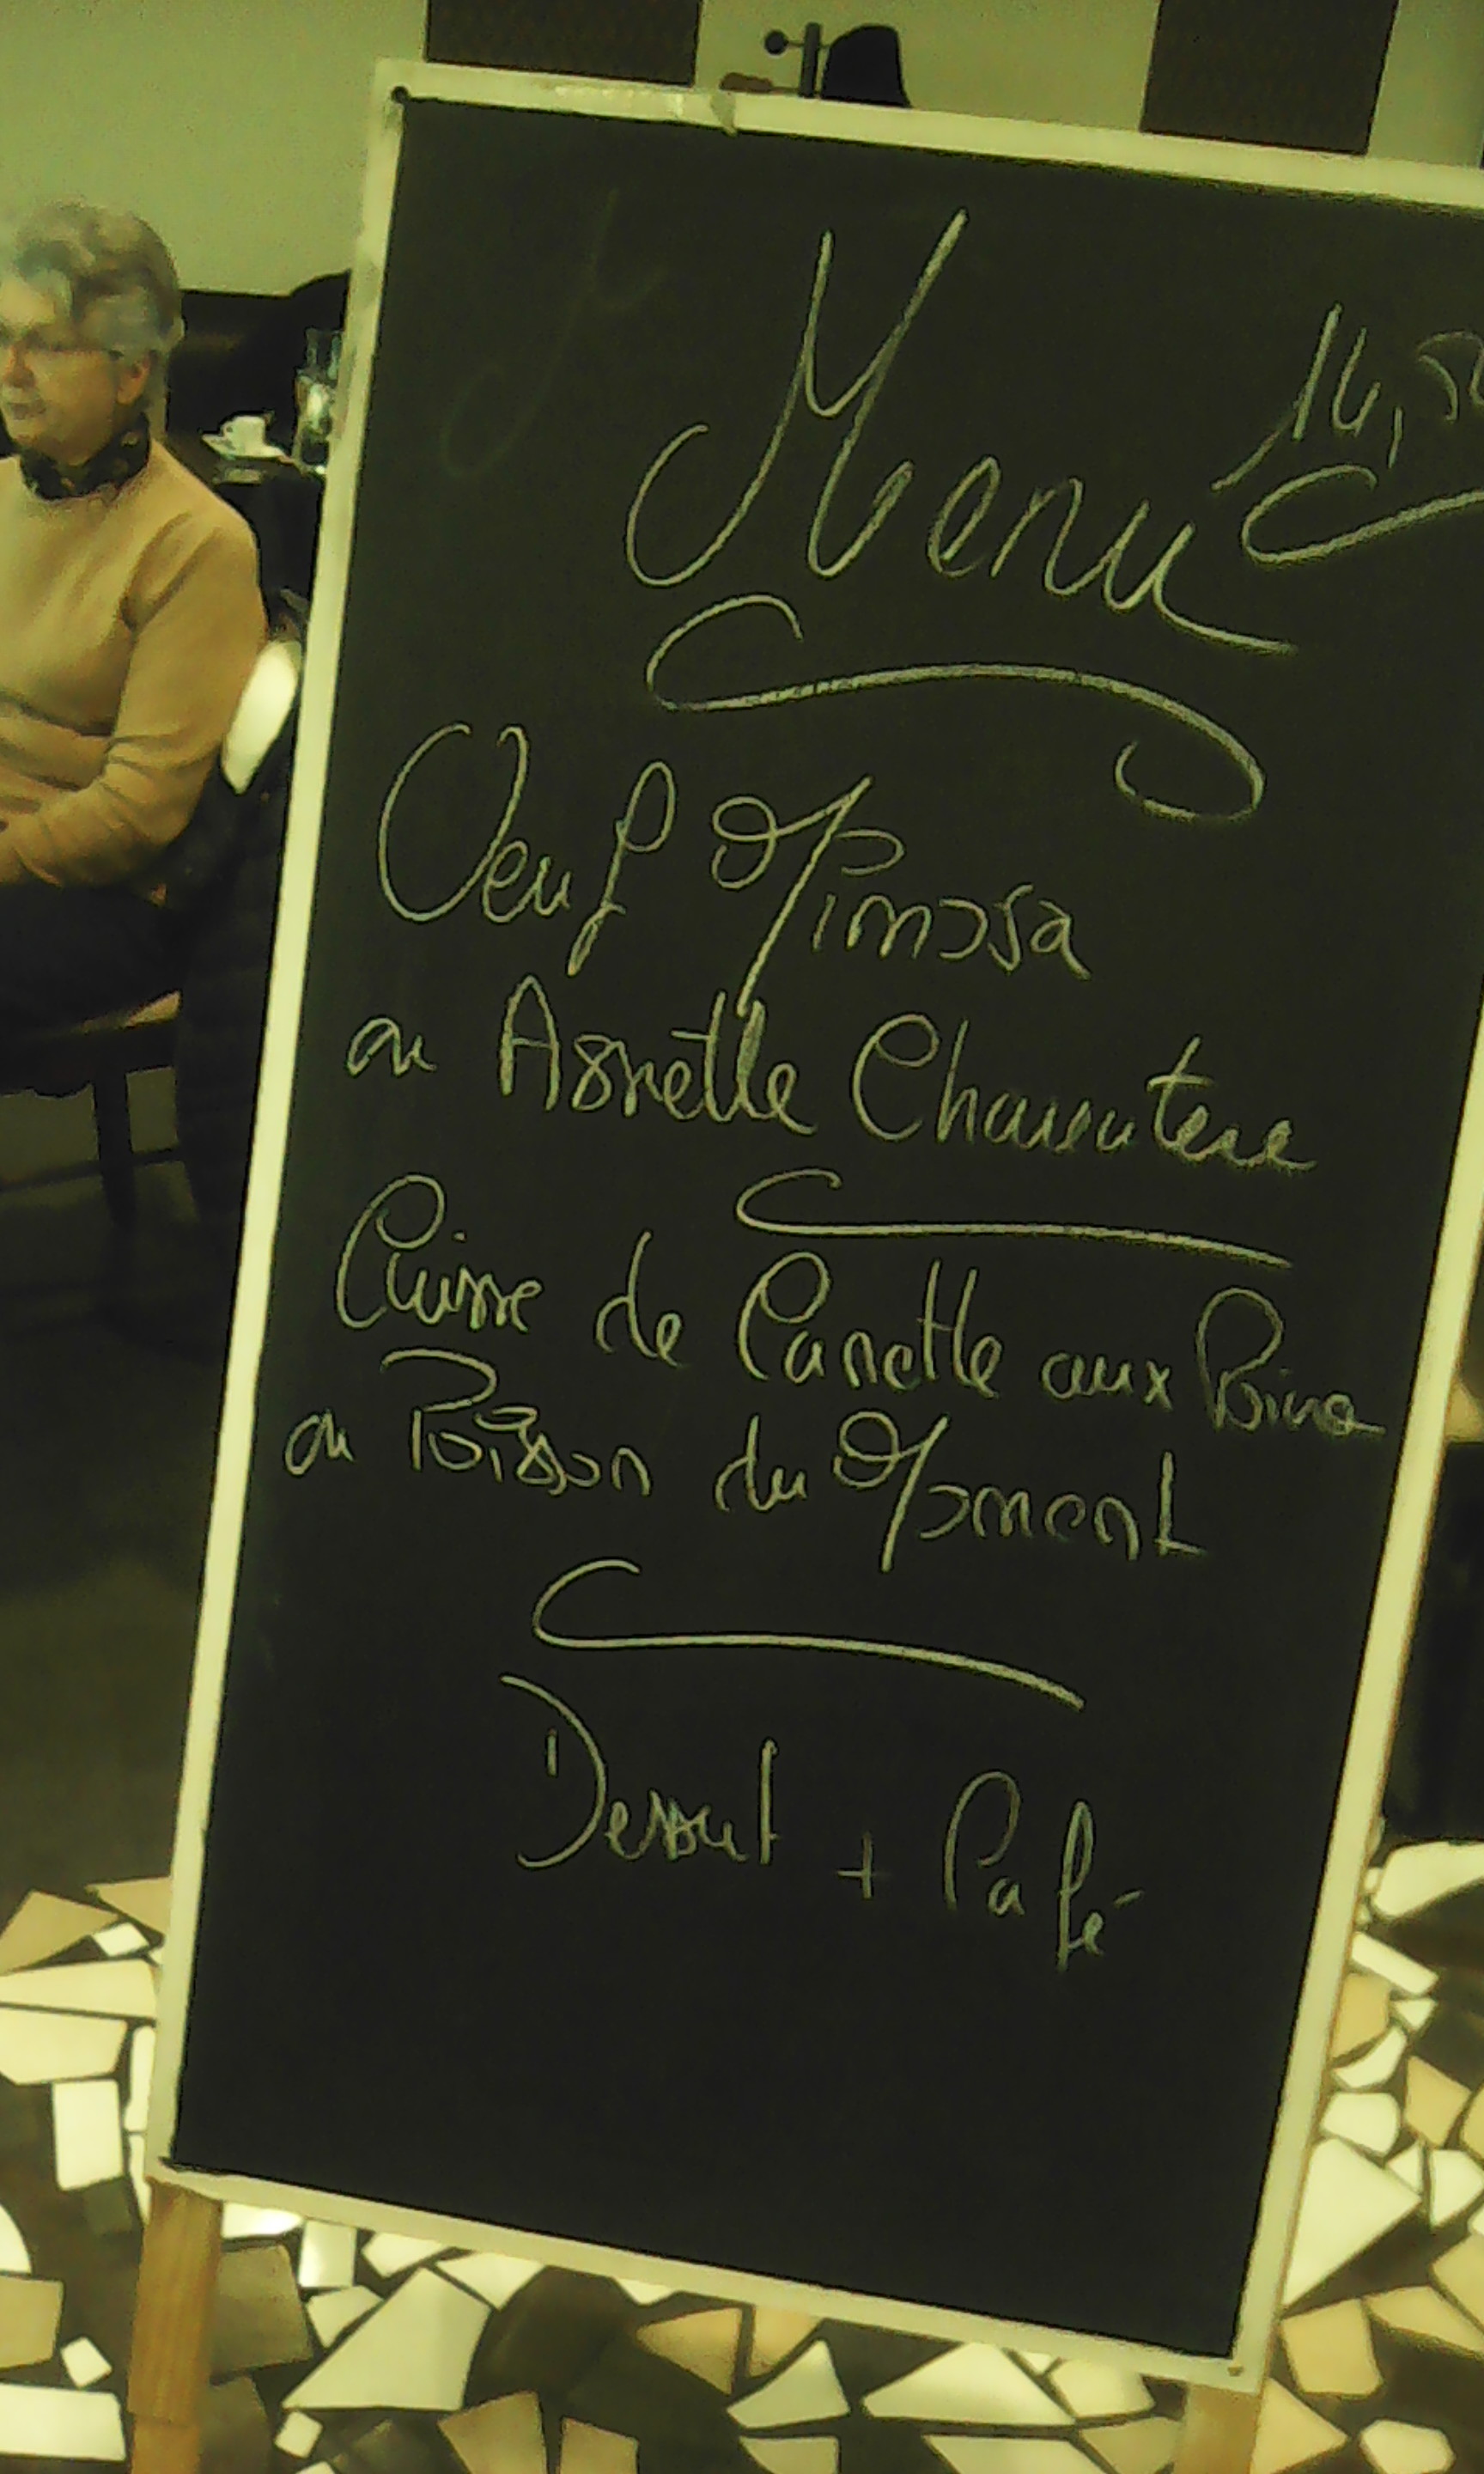 Menu
14,50
Oeuf Mimosa
ou Assiette Charcutière
Cuisse de Canette aux Poivre
ou Poisson du Moment
Dessert + Café